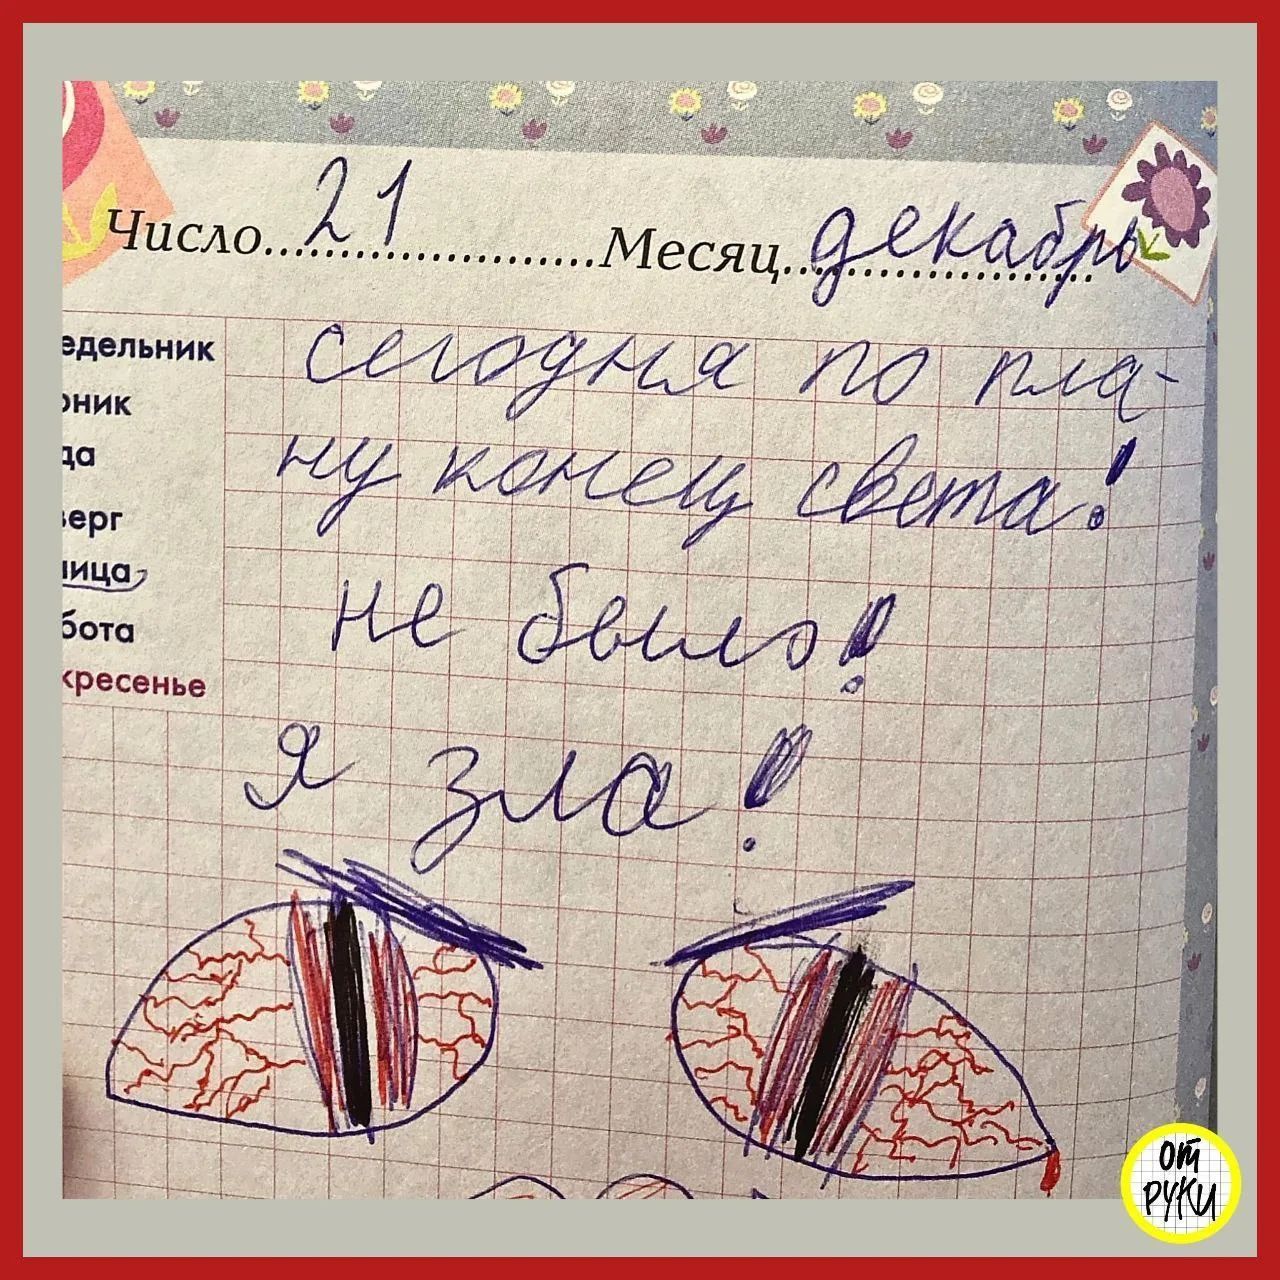 Число 21 Месяц декабрь
едельник
рник
да
верг
ница
бота
кресенье
сегодня по пла-
ну конец света!
не было!
я зла!
от
руки